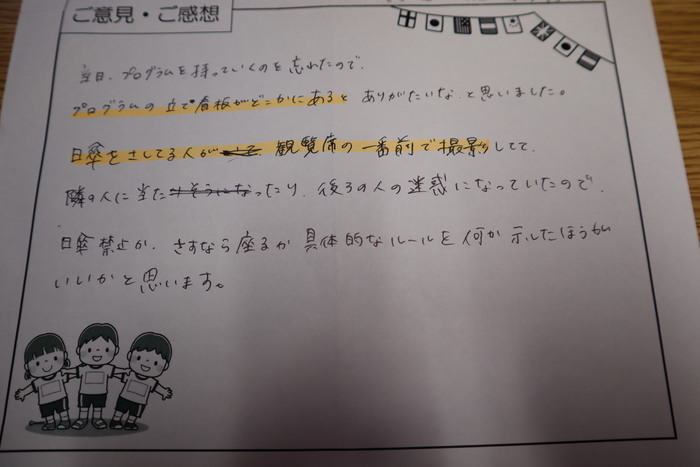 ご意見・ご感想
当日、プログラムを持っていくのを忘れたので、
プログラムの立て看板がどこかにあると ありがたいな、と思いました。
日傘をさしてる人が 観覧席の一番前で撮影してて、
隣の人に当たったり、後ろの人の迷惑になっていたので、
日傘禁止か、さすなら座るか 具体的なルールを何か示したほうが
いいかと思います。